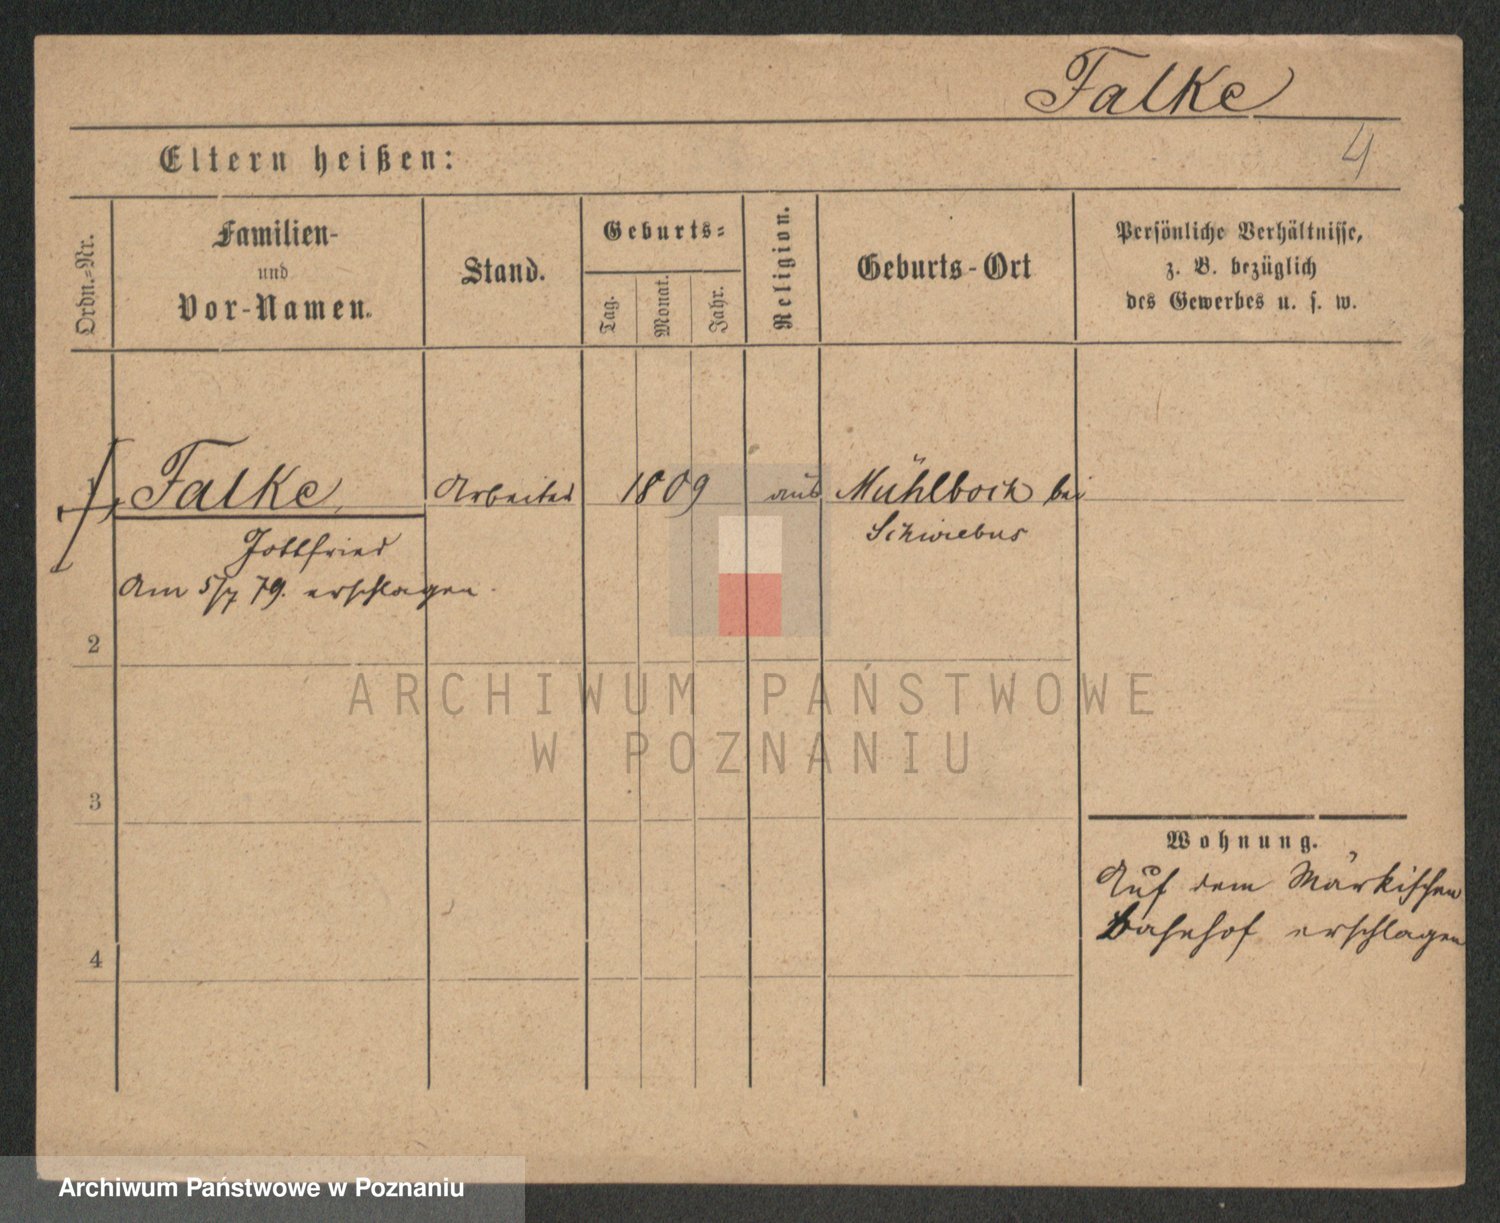 Falke
4
Eltern heißen:
Ordn.-Nr.
Familien-
und
Vor-Namen.
Stand.
Geburts-
Tag.
Monat.
Jahr.
Religion.
Geburts-Ort
Persönliche Verhältnisse,
z. B. bezüglich
des Gewerbes u. s. w.
Falke, Arbeiter 1809 aus Mühlbock bei
Schwiebus
Gottfried
Am 5/7 79. erschlagen.
2
ARCHIWUM PAŃSTWOWE
W POZNANIU
3
Wohnung.
Auf dem Märkischen
Bahnhof erschlagen
4
Archiwum Państwowe w Poznaniu